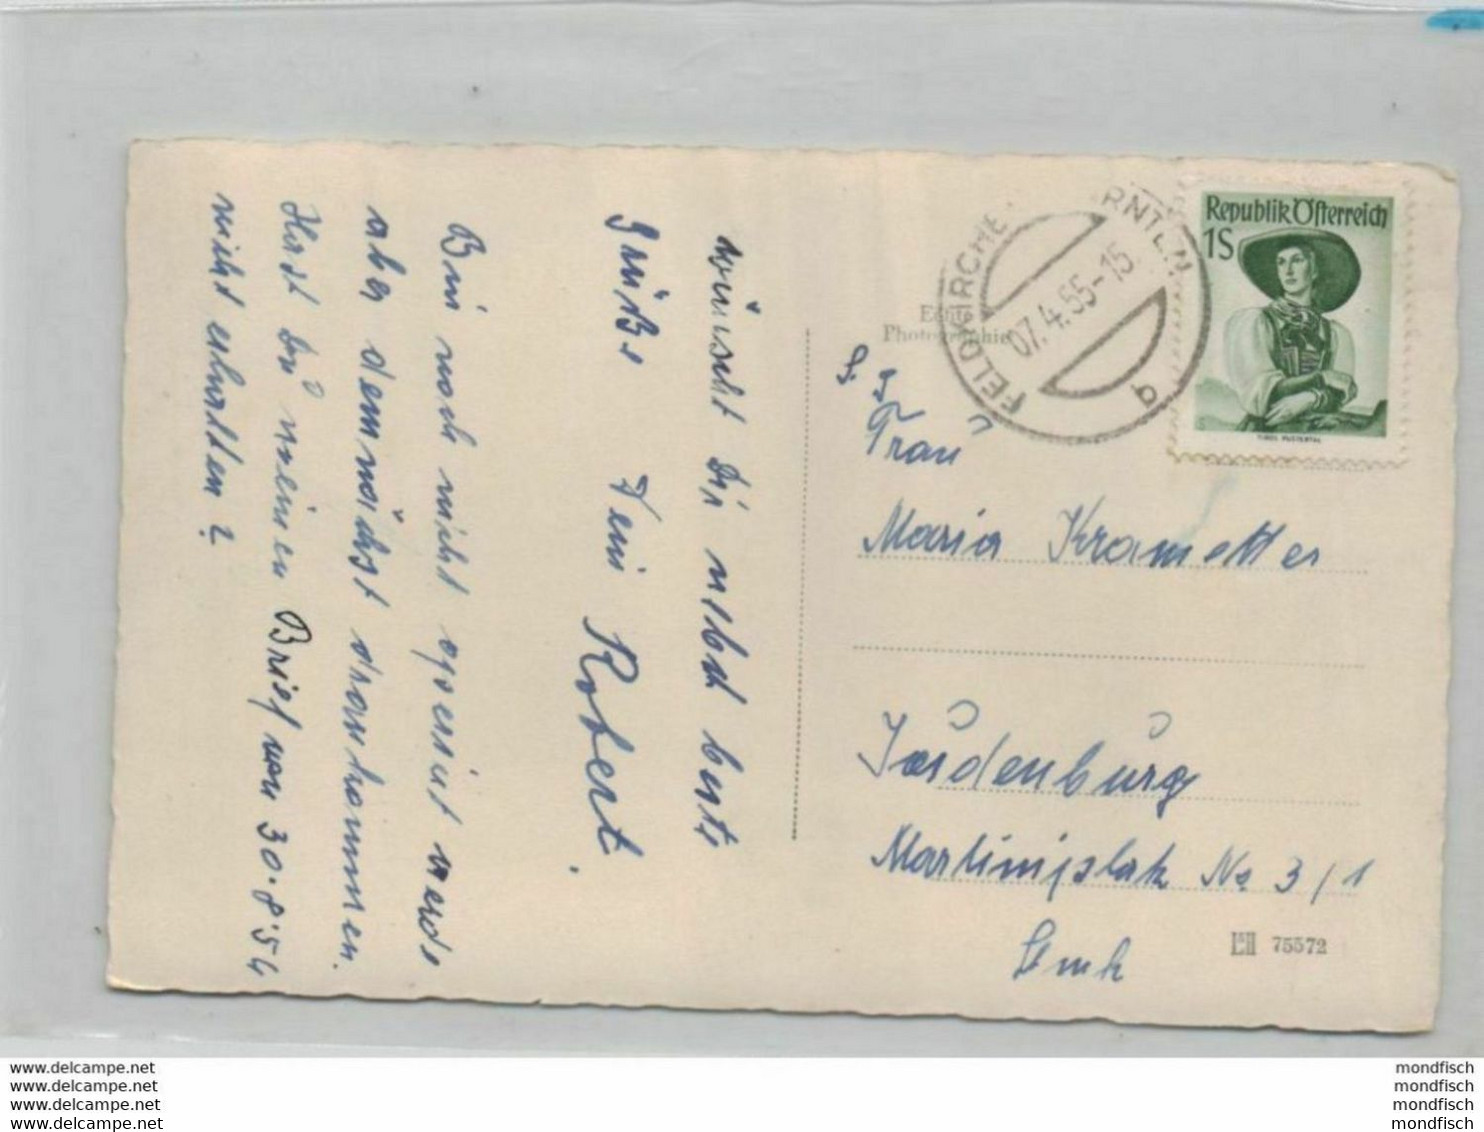 wünscht Dir nebst beste
Grüße Dein
Robert.
Bin noch nicht operirt werde
aber demnächst drankommen.
Hast Du meinen Brief von 30.8.54
nicht erhalten?
Echte
Photographie
FELDKIRCHEN KÄRNTEN
07.4.55-15
b
Republik Österreich
1S
TIROL PUSTERTAL
S. g.
Frau
Maria Krametter
Judenburg
Martiniplatz No 3/1
Stmk
75572
www.delcampe.net
www.delcampe.net
www.delcampe.net
www.delcampe.net
mondfisch
mondfisch
mondfisch
mondfisch